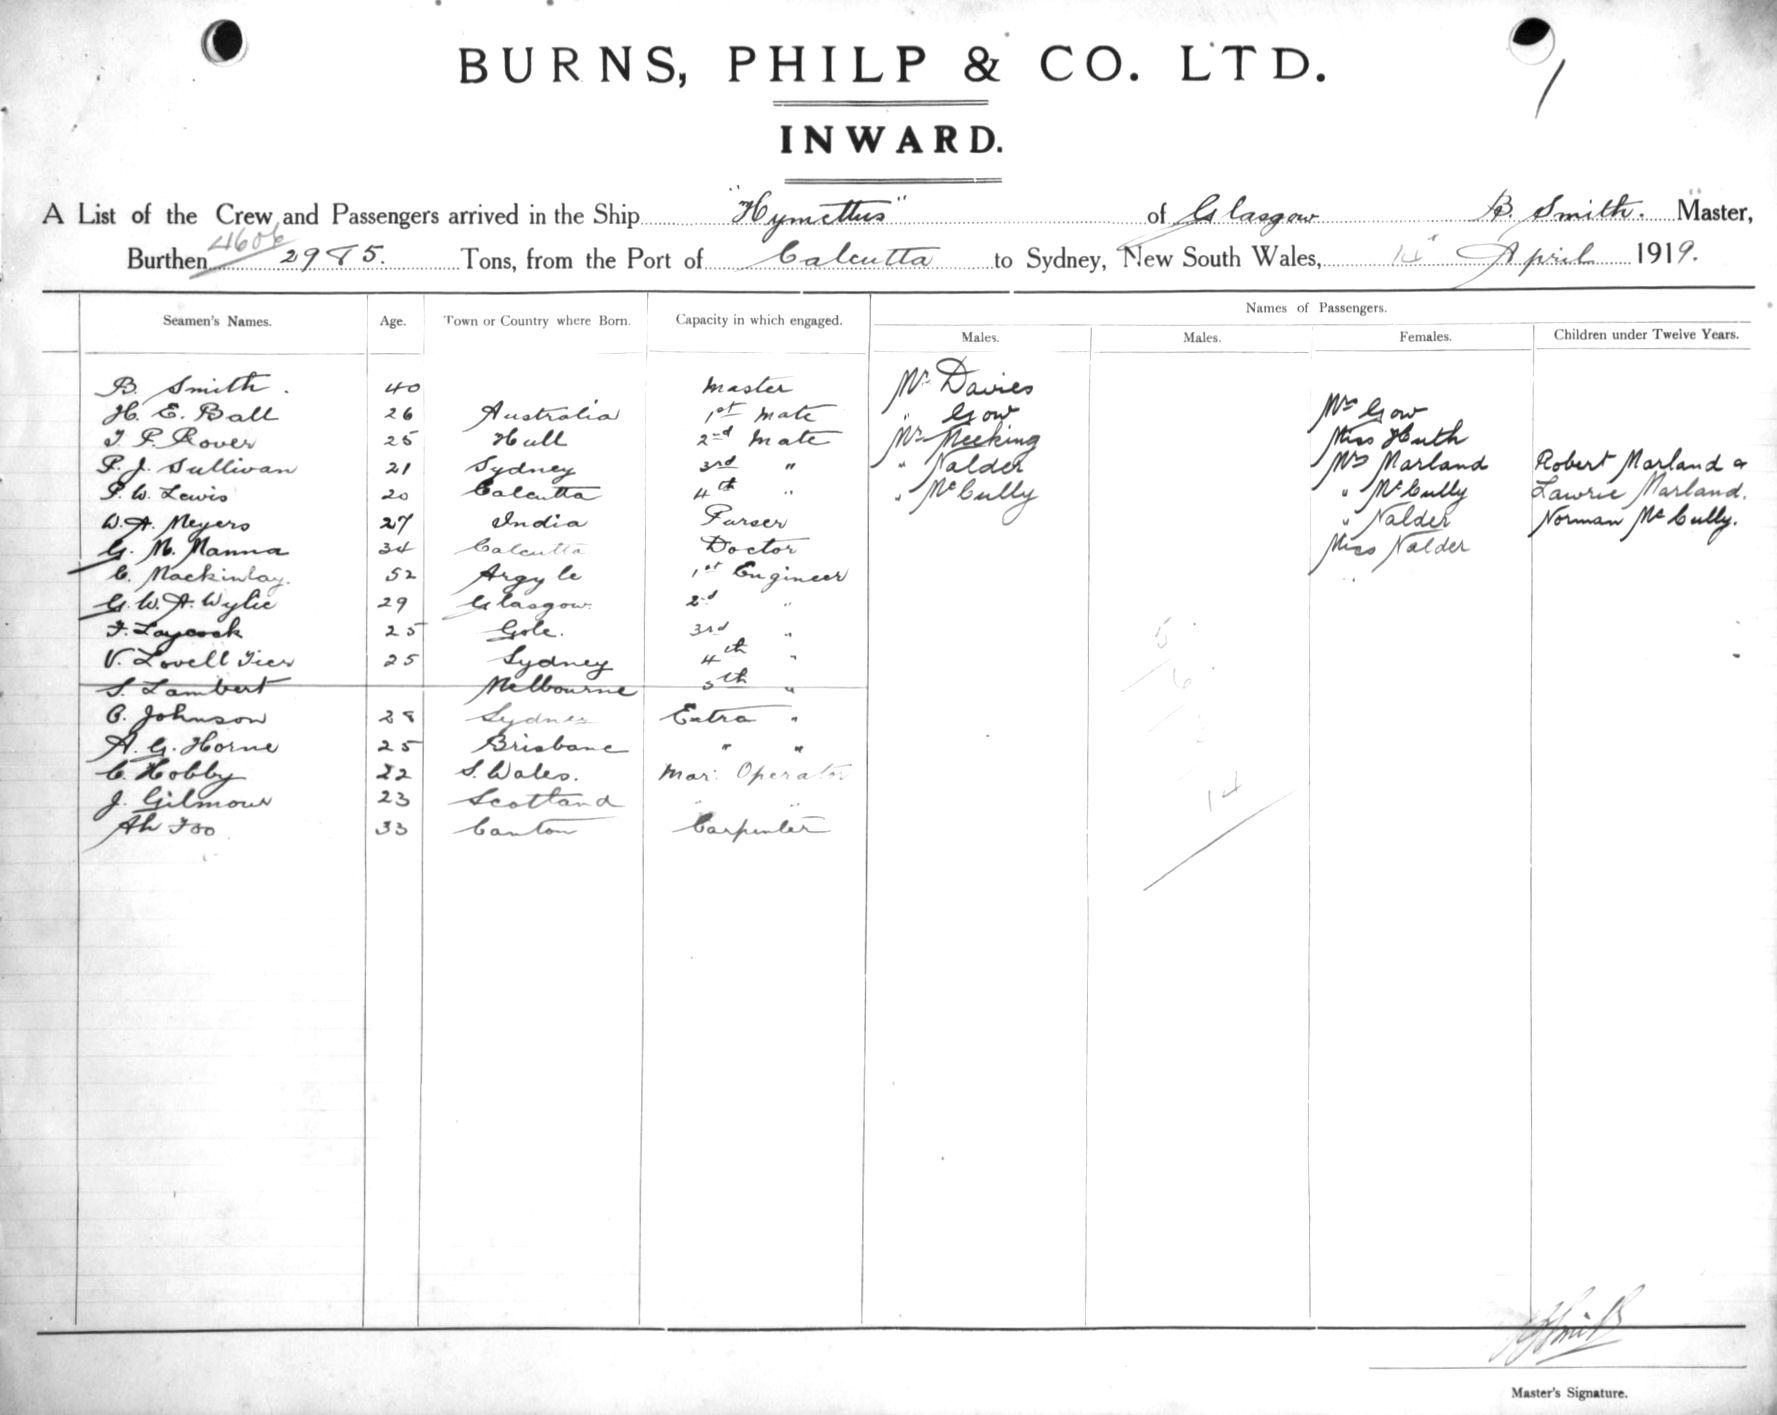 BURNS, PHILP & CO. LTD.
INWARD.
A List of the Crew and Passengers arrived in the Ship "Hymettus" of Glasgow B. Smith. Master,
4606
Burthen 2985. Tons, from the Port of Calcutta to Sydney, New South Wales, 14 April 1919.
Names of Passengers.
Seamen's Names. Age. Town or Country where Born. Capacity in which engaged. Males. Males. Females. Children under Twelve Years.
B. Smith. 40 Master Mr Davies
H. E. Ball 26 Australia 1st Mate " Gow Mrs Gow
J P. Rover 25 Hull 2nd Mate Mr Meeking Miss Huth
P. J. Sullivan 21 Sydney 3rd " " Nalder Mrs Marland Robert Marland &
P. W. Lewis 20 Calcutta 4th " " McCully " McCully Lawrie Marland.
W. A. Meyers 27 India Purser " Nalder Norman McCully.
G. M. Manna 34 Calcutta Doctor Miss Nalder
C. Mackinlay. 52 Argyle 1st Engineer
G. W. A. Wylie 29 Glasgow 2nd "
F. Laycock 25 Gole. 3rd "
V. Lovell Tier 25 Sydney 4th "
S. Lambert Melbourne 5th "
O. Johnson 28 Sydney Extra "
A. G. Horne 25 Brisbane " "
C. Hobby 22 S. Wales. Mar: Operator
J. Gilmour 23 Scotland " "
Ah Foo 33 Canton Carpenter
5
6
3
14
B Smith
Master's Signature.